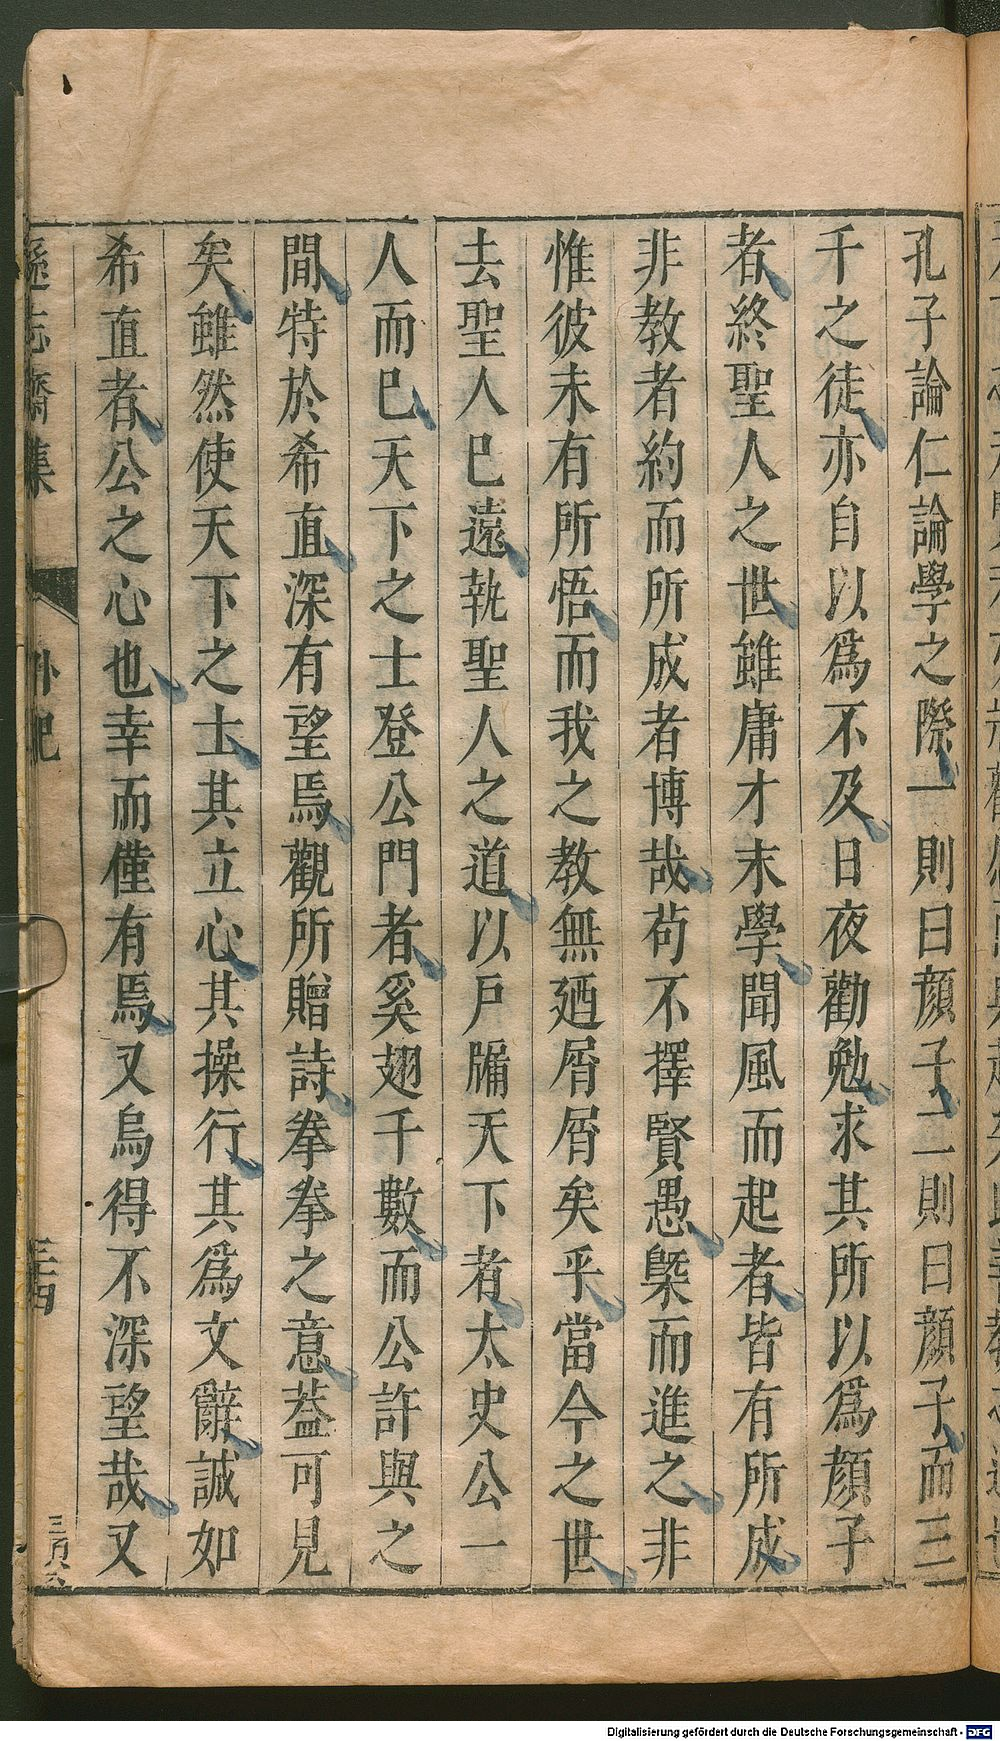 孔子論仁論學之際一則曰顔子二則曰顔子而三
千之徒亦自以爲不及日夜勸勉求其所以爲顔子
者終聖人之世雖庸才末學聞風而起者皆有所成
非教者約而所成者博哉苟不擇賢愚槩而進之非
惟彼未有所悟而我之教無廼屑屑矣乎當今之世
去聖人已遠執聖人之道以戸牗天下者太史公一
人而已天下之士登公門者奚翅千數而公許與之
間特於希直深有望焉觀所贈詩拳拳之意葢可見
矣雖然使天下之士其立心其操行其爲文辭誠如
希直者公之心也幸而僅有焉又烏得不深望哉又
遜志齋集
三四
Digitalisierung gefördert durch die Deutsche Forschungsgemeinschaft - DFG